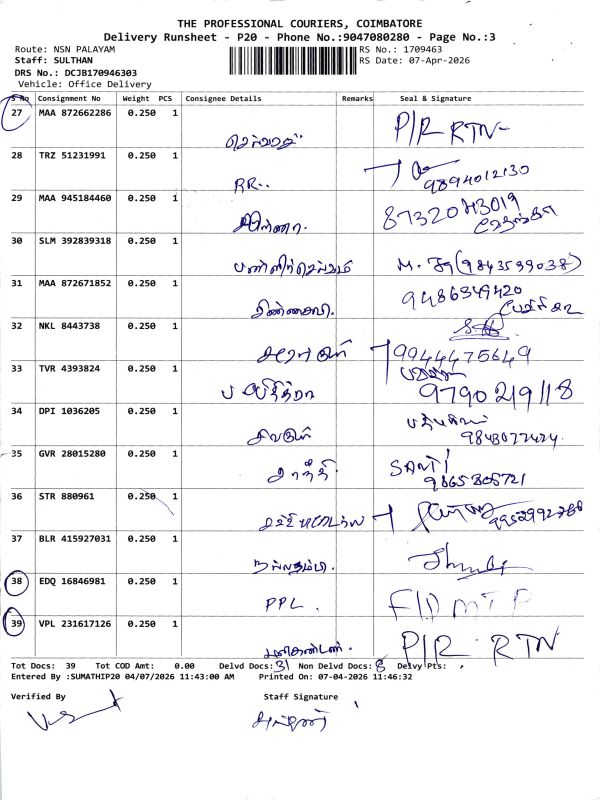 THE PROFESSIONAL COURIERS, COIMBATORE
Delivery Runsheet - P20 - Phone No.:9047080280 - Page No.:3
Route: NSN PALAYAM
RS No.: 1709463
Staff: SULTHAN
RS Date: 07-Apr-2026
DRS No.: DCJB170946303
Vehicle: Office Delivery
S No Consignment No Weight PCS Consignee Details Remarks Seal & Signature
27 MAA 872662286 0.250 1
P/R RTN
28 TRZ 51231991 0.250 1
RR..
9894012130
29 MAA 945184460 0.250 1
30 SLM 392839318 0.250 1
பன்னிர்செல்வம் (9843599038)
31 MAA 872671852 0.250 1
9486349420
32 NKL 8443738 0.250 1
9944475649
33 TVR 4393824 0.250 1
பவித்ரா
9790219118
34 DPI 1036205 0.250 1
சிவகுமார்
9843077474
35 GVR 28015280 0.250 1
சாந்தி. SANTI
9865805721
36 STR 880961 0.250 1
9952992788
37 BLR 415927031 0.250 1
நல்லதம்பி.
38 EDQ 16846981 0.250 1
PPL.
39 VPL 231617126 0.250 1
மணிகண்டன். P/R. RTN
Tot Docs: 39 Tot COD Amt: 0.00 Delvd Docs: 31 Non Delvd Docs: 8 Delvy Pts:
Entered By :SUMATHIP20 04/07/2026 11:43:00 AM Printed On: 07-04-2026 11:46:32
Verified By Staff Signature